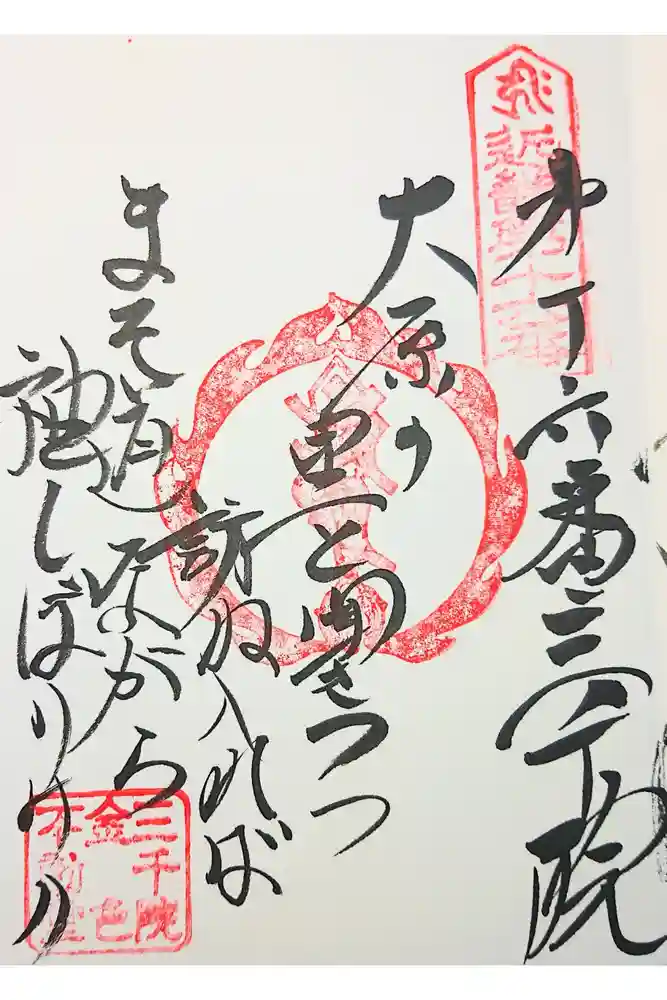 第十六番三千院
大原の
里と聞きつつ
訪ね入れば
まそ道ながら
袖しぼりけり
三千院
金色
不動堂